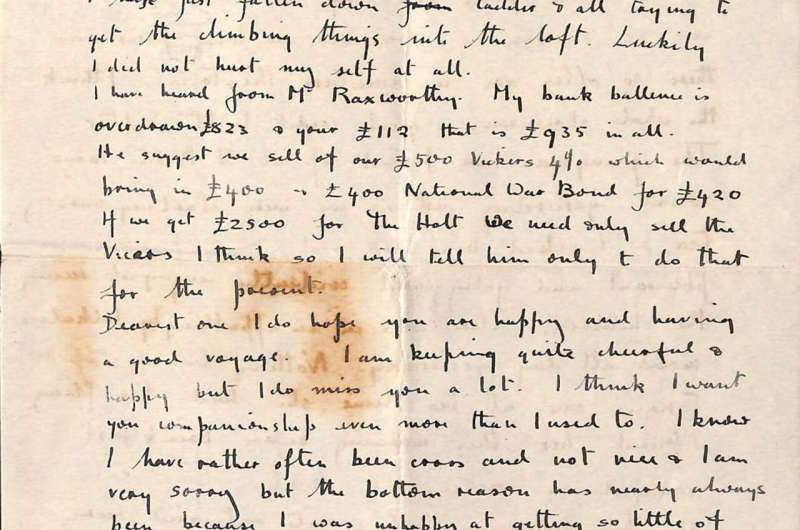 I have just fallen down from ladder & all trying to
get the climbing things into the loft. Luckily
I did not hurt my self at all.
I have heard from Mr Raxworthy. My bank ballence is
overdrawn £823 & your £112 that is £935 in all.
He suggest we sell of our £500 Vickers 4% which would
bring in £400 & £400 National War Bond for £420
If we get £2500 for The Holt we need only sell the
Vicars I think so I will tell him only t do that
for the present.
Dearest one I do hope you are happy and having
a good voyage. I am keeping quite cheerful &
happy but I do miss you a lot. I think I want
you companionship even more than I used to. I know
I have rather often been cross and not nice & I am
very sorry but the bottom reason has nearly always
been because I was unhappy at getting so little of